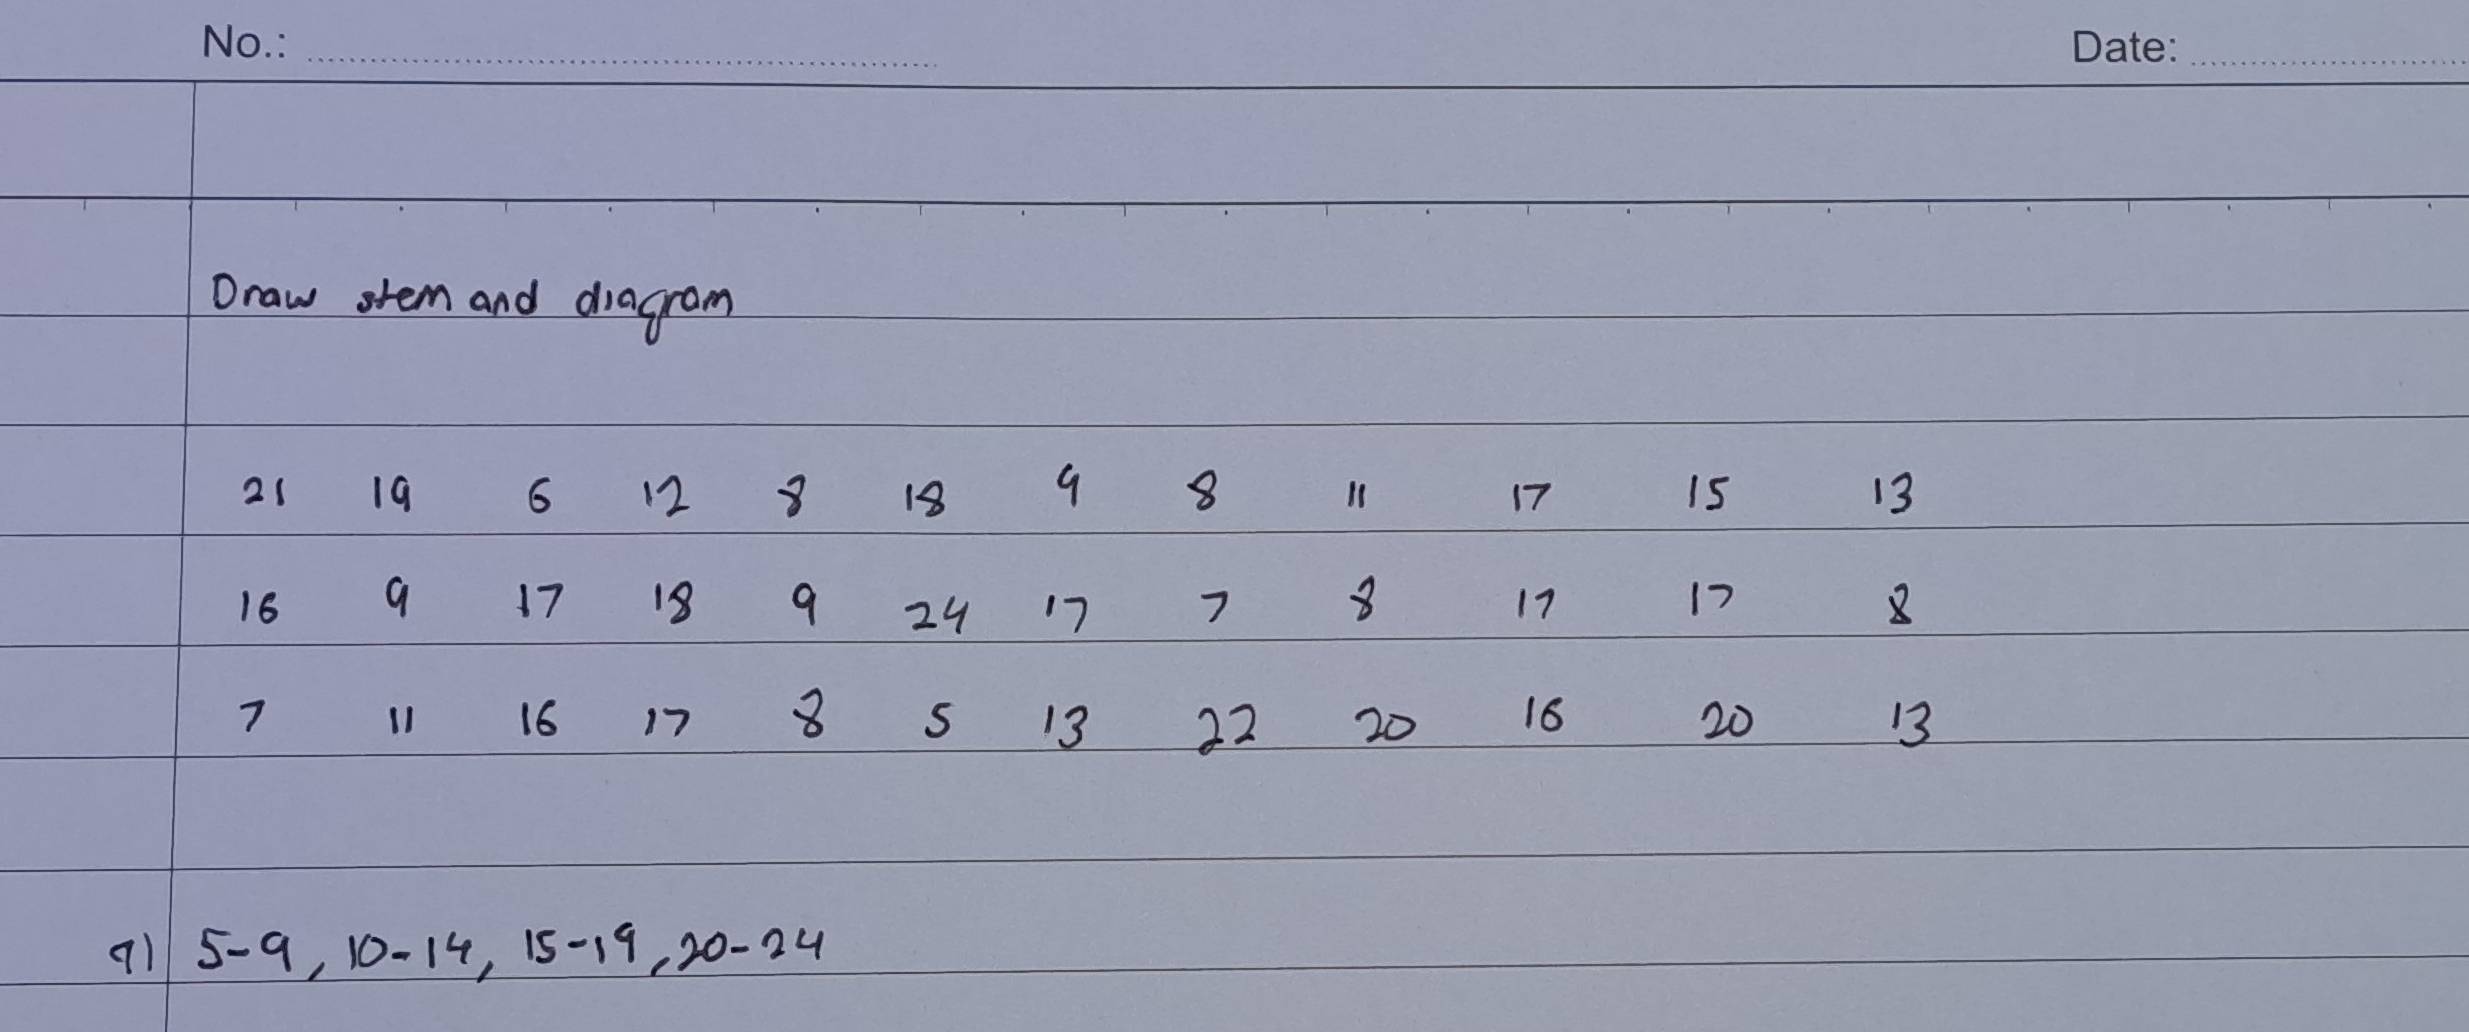 No.: Date:
Draw stem and diagram
21 19 6 12 8 18 9 8 11 17 15 13
16 9 17 18 9 24 17 7 8 17 17 8
7 11 16 17 8 5 13 22 20 16 20 13
a) 5-9, 10-14, 15-19, 20-24